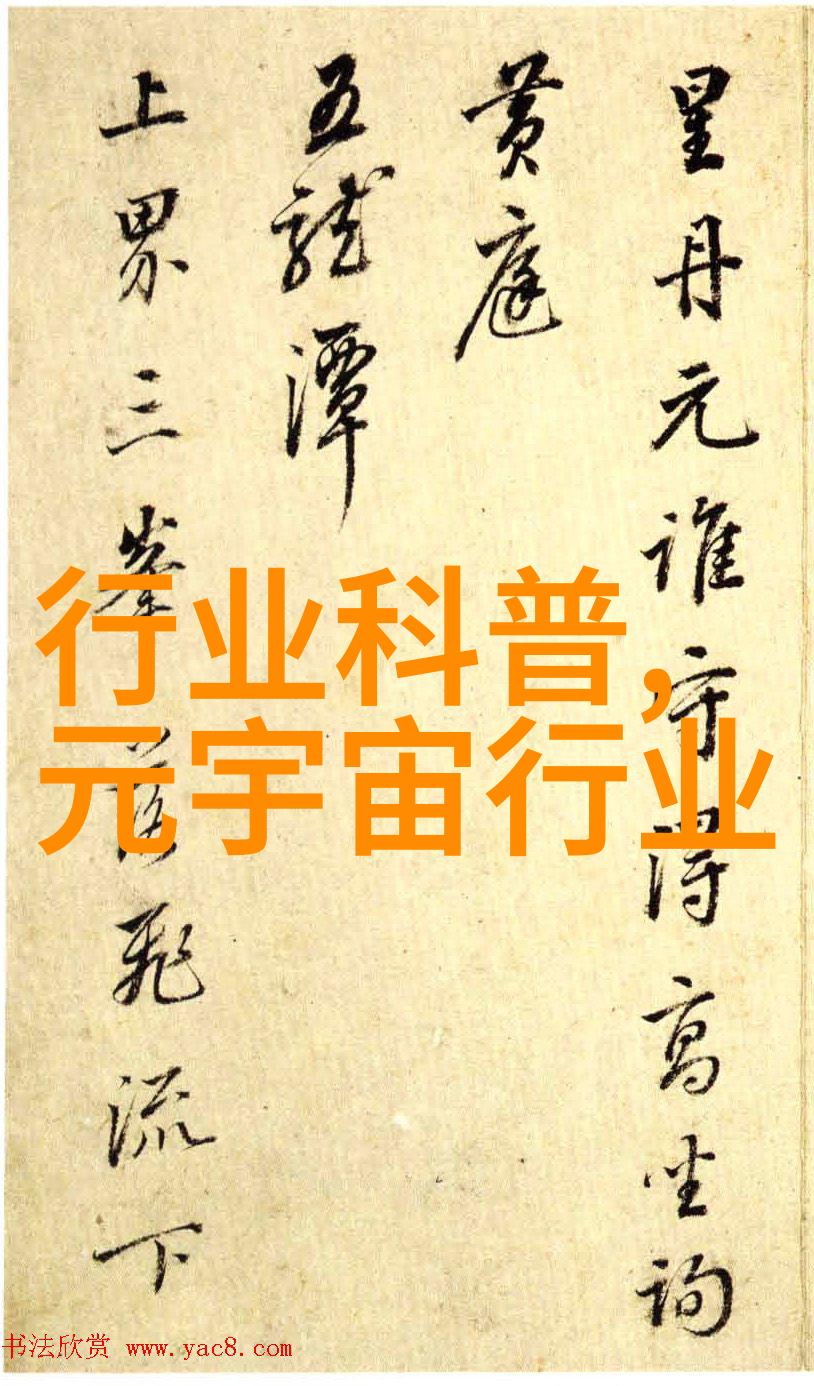 星丹元谁守得高坐询
黄庭
五龙潭
上界三峯落飛流下
行业科普,
元宇宙行业
书法欣赏 www.yac8.com